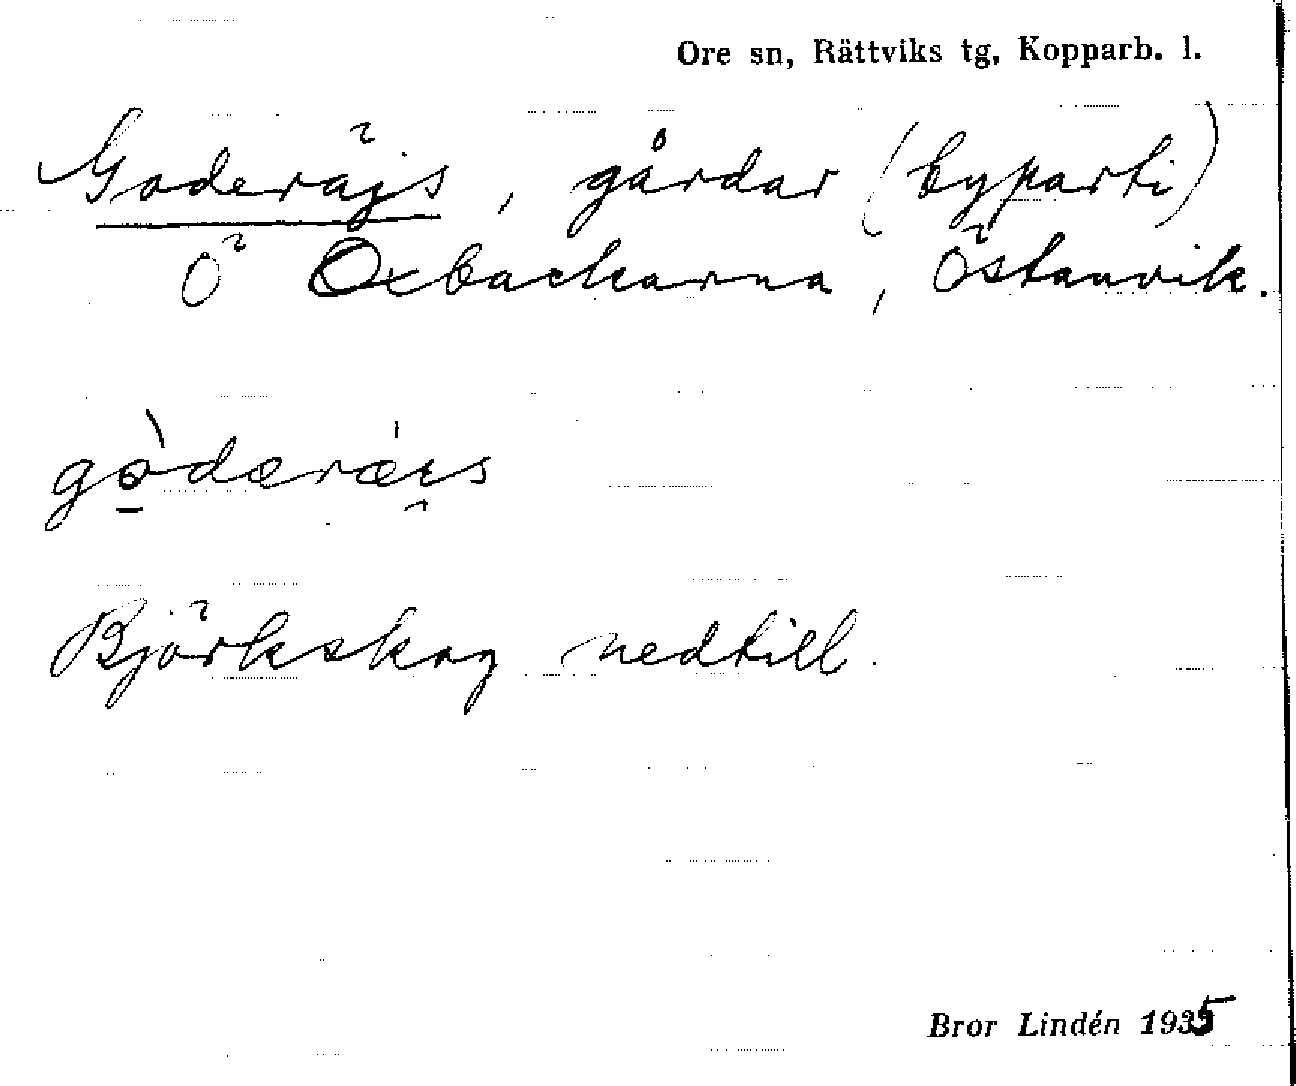 Ore sn, Rättviks tg, Kopparb. l.
Goderäjs, gårdar (byparti)
Ö Oxbackarna, Östanvik.
gòdærǽi̯s
Björkskog nedtill.
Bror Lindén 1935